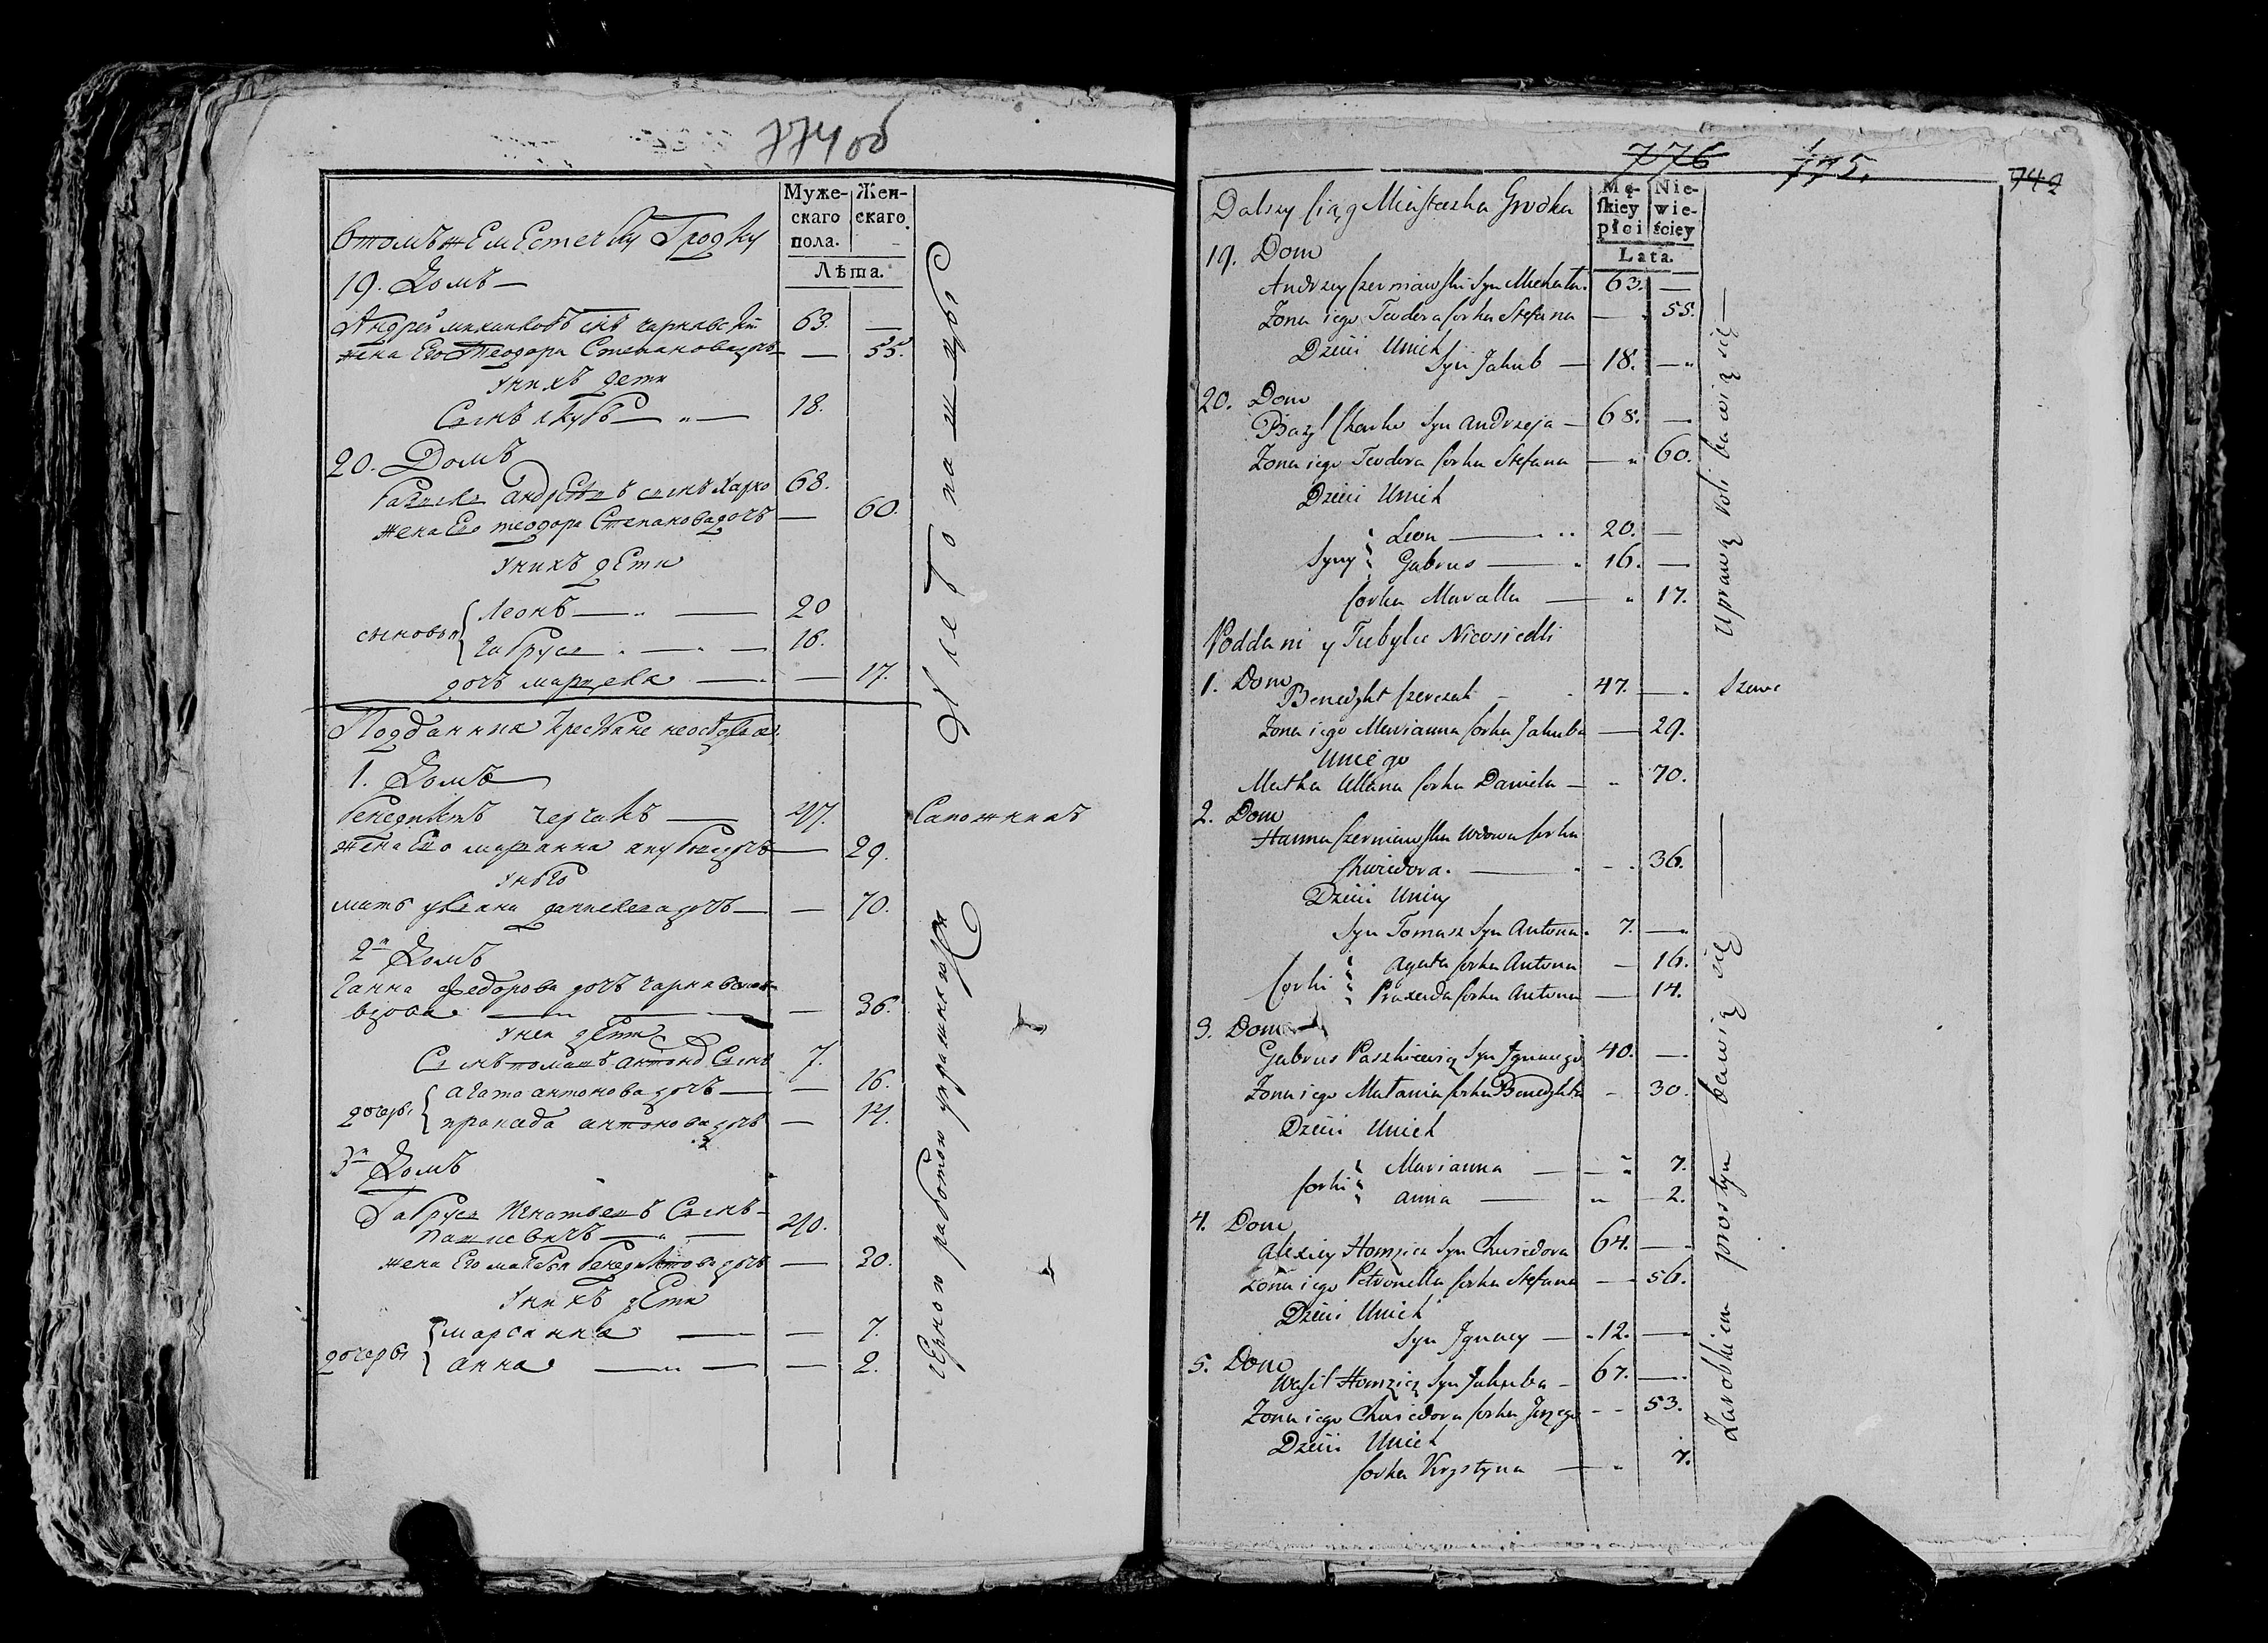 774 об
Муже-
скаго
пола.
Жен-
скаго.
Лѣта.
Втомъже местечку Гродку
19. Домъ —
Андрей михаиловъ снъ чернявскiй 63. —
жена Его Теодора Степанова дочь — 55.
Унихъ дети
Сынъ якубъ — 18.
20. Домъ
Базыль андреевъ сынъ Харко 68.
жена Его теодора Степанова дочь — 60.
Унихъ дети
сыновья { Леонъ — 20
Габрусь — 16.
дочь марцеля — — 17.
Подданные крестьяне неоседлые
1. Домъ
бенедыктъ черчакъ — 47. Сапожникъ
жена Его марянна якубова дочь — 29.
Унего
мать ульяна даниелева дочь — — 70.
2й Домъ
Ганна федорова дочь чернявская
вдова — — 36.
Унея дети
Сынъ томашъ антоновъ Сынъ 7.
дочери { агата антонова дочь — — 16.
праксда антонова дочь — 14.
3й Домъ
Габрусь Игнатьевъ Сынъ
пашкевичъ — 40.
жена Его бенедыктова дочь — 30.
Унихъ дети
дочери { марсанна — — 7.
анна — — 2.
хлебопашцы
черною работою упражняются
776 775. 742
Dalszy Ciąg Miasteczka Grodka
Mę-
skiey
płci
Nie-
wie-
ściey
Lata.
19. Dom
Andrzey Czerniawski Syn Michała. 63. —
Zona iego Teodora Corka Stefana — 55.
Dzieci Unich
Syn Jakub — 18. —
20. Dom
Bazyl Charko Syn Andrzeja — 68. —
Zona iego Teodora Corka Stefana — 60.
Dzieci Unich
Syny { Leon — 20. —
Gabrus — 16. —
Corka Marcella — 17.
Poddani y Tubylce Nieosiedli
1. Dom
Benedykt Czerczak - 47. — Szewc
Zona iego Marianna Corka Jakuba — 29.
Uniego
Matka Ullana Corka Daniela — 70.
2. Dom
Hanna Czerniawska Wdowa Corka
Chwiedora. — 36.
Dzieci Uniey
Syn Tomasz Syn Antona. 7. —
Corki { Agata Corka Antona — 16.
Praxeda Corka Antona — 14.
3. Dom
Gabrus Paszkiewicz Syn Ignacego 40. —
Zona iego Matania Corka Benedykta - 30.
Dzieci Unich
Corki { Marianna — 7.
Anna — 2.
4. Dom
Alexiey Homzicz Syn Chwiedora 64. —
Zona iego Petronella Corka Stefana — 56.
Dzieci Unich
Syn Ignacy — 12. —
5. Dom
Wasil Homzicz Syn Jakuba — 67. —
Zona iego Chwiedora Corka Jerzego - 53.
Dzieci Unich
Corka Krystyna — 7.
Uprawą roli bawią się —
Zarobkiem prostym bawią się —